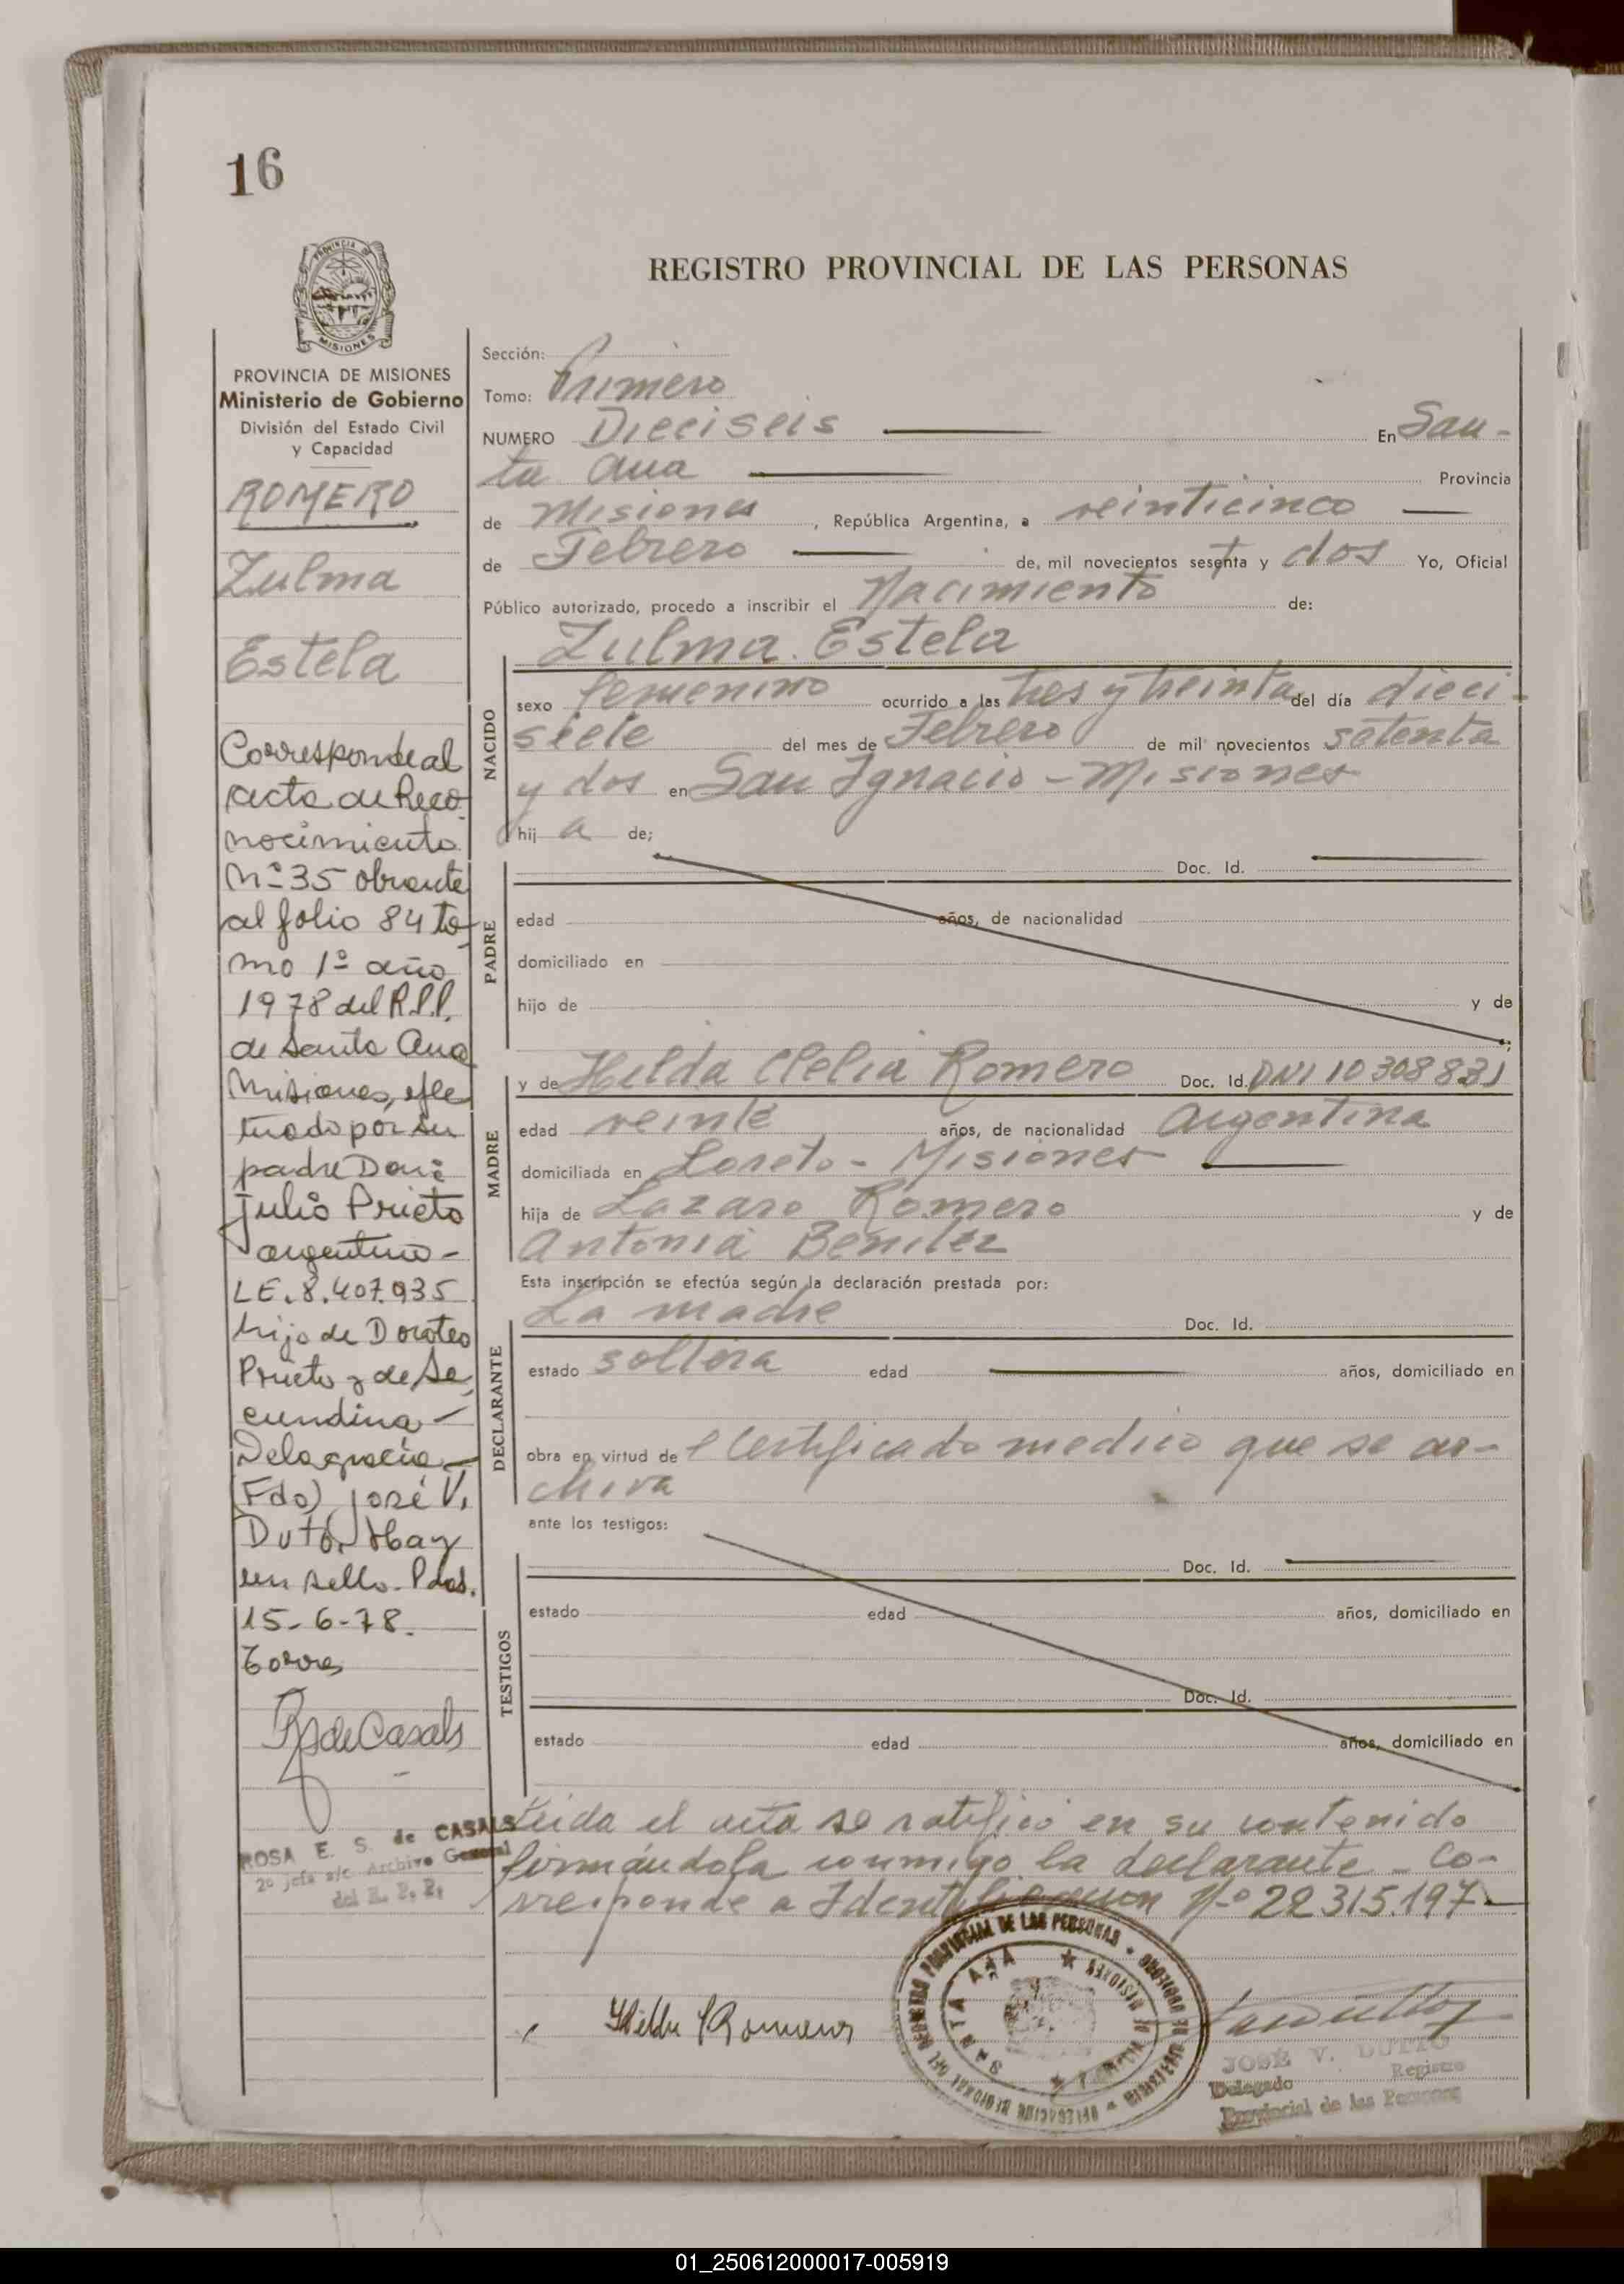 16
PROVINCIA DE
MISIONES
REGISTRO PROVINCIAL DE LAS PERSONAS
PROVINCIA DE MISIONES
Ministerio de Gobierno
División del Estado Civil
y Capacidad
ROMERO
Zulma
Estela
Corresponde al
acta de Reco
nocimiento
Nº 35 obrante
al folio 84 to-
mo 1º año
1978 del R.P.P.
de Santa Ana
Misiones, efec
tuado por su
padre Don:
Julio Prieto
argentino -
LE. 8.407.935
hijo de Doroteo
Prieto y de Se
cundina -
Delagracia -
Fdo) José V.
Dutto. Hay
un sello. Pdas.
15-6-78.
Torres
RS de Casals
ROSA E. S. de CASALS
2º Jefa a/c Archivo General
del R. P. P.
Sección:
Tomo: Primero
NUMERO Dieciseis En San-
ta Ana Provincia
de Misiones, República Argentina, a veinticinco
de Febrero de mil novecientos sesenta y dos Yo, Oficial
Público autorizado, procedo a inscribir el Nacimiento de:
Zulma Estela
NACIDO
sexo femenino ocurrido a las tres y treinta del día dieci-
siete del mes de Febrero de mil novecientos setenta
y dos en San Ignacio - Misiones
hij a de;
PADRE
Doc. Id.
edad años, de nacionalidad
domiciliado en
hijo de y de
MADRE
y de Hilda Clelia Romero Doc. Id. DNI 10 308 831
edad veinte años, de nacionalidad Argentina
domiciliada en Loreto - Misiones
hija de Lazaro Romero y de
Antonia Benitez
Esta inscripción se efectúa según la declaración prestada por:
DECLARANTE
La madre Doc. Id.
estado soltera edad años, domiciliado en
obra en virtud de l Certificado medico que se ar-
chiva
ante los testigos:
TESTIGOS
Doc. Id.
estado edad años, domiciliado en
Doc. Id.
estado edad años, domiciliado en
Leida el acta se ratificó en su contenido
firmándola conmigo la declarante - Co-
rresponde a Identificacion Nº 22 315.197 -
Hilda Romero
SANTA ANA
JOSÉ V. DUTTO
Delegado Registro
Provincial de las Personas
01_250612000017-005919